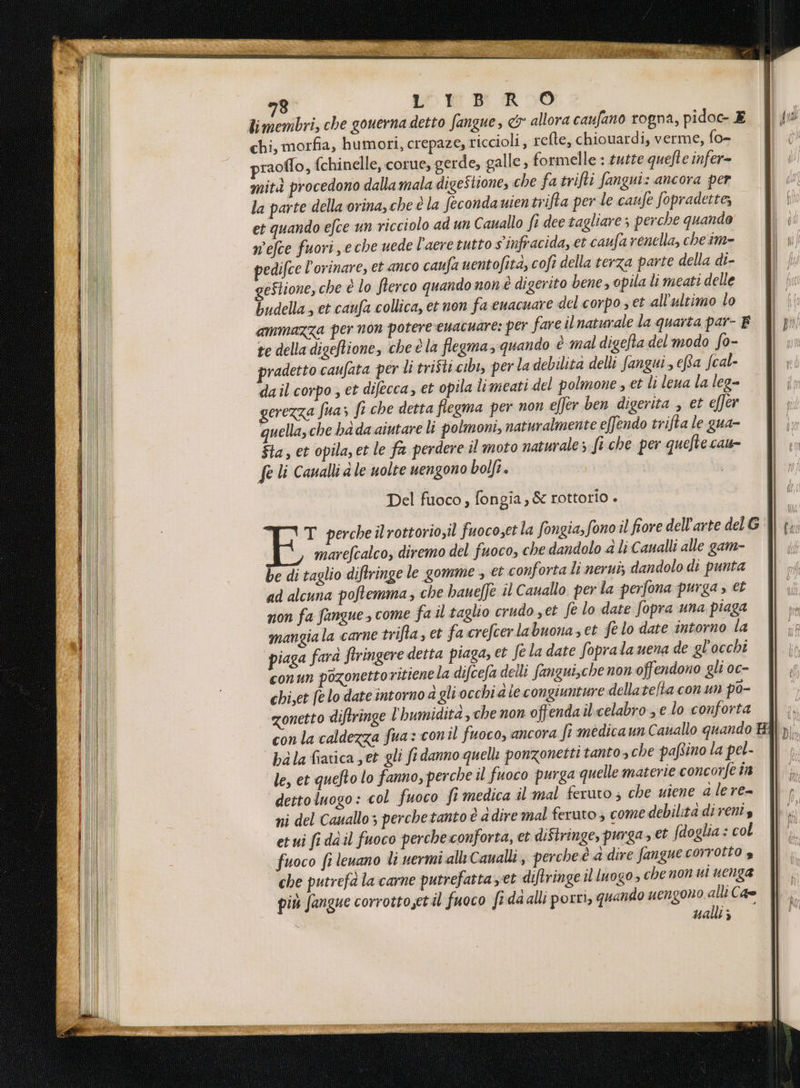 98 LIBRO
li membri, che gouerna detto ſangue, & allora cauſano rogna, pidoc- E
chi, morfia, humori, crepaze, riccioli, reſte, chiouardi, verme, ſo-
praoſſo, ſchinelle, corue, gerde, galle, formelle: tutte queſte infer-
mità procedono dalla mala digeſtione, che fa triſti ſangui: ancora per
la parte della orina, che è la ſeconda uien triſta per le cauſe ſopradette,
et quando eſce un ricciolo ad un Cauallo ſi dee tagliare; perche quando
n'eſce fuori, e che uede l'aere tutto s'infracida, et cauſa renella, che im-
pediſce l'orinare, et anco cauſa uentoſità, coſi della terza parte della di-
geſtione, che è lo ſterco quando non è digerito bene, opila li meati delle
budella, et cauſa collica, et non fa euacuare del corpo, et all'ultimo lo
ammazza per non potere euacuare: per fare il naturale la quarta par- F
te della digeſtione, che è la flegma, quando è mal digeſta del modo ſo-
pradetto cauſata per li triſti cibi, per la debilità delli ſangui, eſsa ſcal-
da il corpo, et diſecca, et opila li meati del polmone, et li leua la leg-
gerezza ſua; ſi che detta flegma per non eſſer ben digerita, et eſſer
quella, che hà da aiutare li polmoni, naturalmente eſſendo triſta le gua-
ſta, et opila, et le fa perdere il moto naturale; ſi che per queſte cau-
ſe li Caualli à le uolte uengono bolſi.
Del fuoco, ſongia, & rottorio.
ET perche il rottorio, il fuoco, et la ſongia, ſono il fiore dell'arte del G
mareſcalco, diremo del fuoco, che dandolo à li Caualli alle gam-
be di taglio diſtringe le gomme, et conforta li nerui; dandolo di punta
ad alcuna poſtemma, che haueſſe il Cauallo per la perſona purga, et
non fa ſangue, come fa il taglio crudo, et ſe lo date ſopra una piaga
mangia la carne triſta, et fa creſcer la buona, et ſe lo date intorno la
piaga farà ſtringere detta piaga, et ſe la date ſopra la uena de gl'occhi
con un pòzonetto ritiene la diſceſa delli ſangui, che non offendono gli oc-
chi, et ſe lo date intorno à gli occhi à le congiunture della teſta con un po-
zonetto diſtringe l'humidità, che non offenda il celabro, e lo conforta
con la caldezza ſua: con il fuoco, ancora ſi medica un Cauallo quando H
hà la ſiatica, et gli ſi danno quelli ponzonetti tanto, che paſsino la pel-
le, et queſto lo fanno, perche il fuoco purga quelle materie concorſe in
detto luogo: col fuoco ſi medica il mal feruto, che uiene à le re-
ni del Cauallo; perche tanto è à dire mal feruto, come debilità di reni,
et ui ſi dà il fuoco perche conforta, et diſtringe, purga, et ſdoglia: col
fuoco ſi leuano li uermi alli Caualli, perche è à dire ſangue corrotto,
che putrefà la carne putrefatta, et diſtringe il luogo, che non ui uenga
più ſangue corrotto, et il fuoco ſi dà alli porri, quando uengono alli Ca-
ualli;